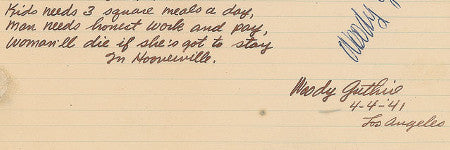 Kids needs 3 square meals a day,
Man needs honest work and pay,
Woman'll die if she's got to stay
In Hooverville.
Woody
Woody Guthrie
4-4-41
Los Angeles